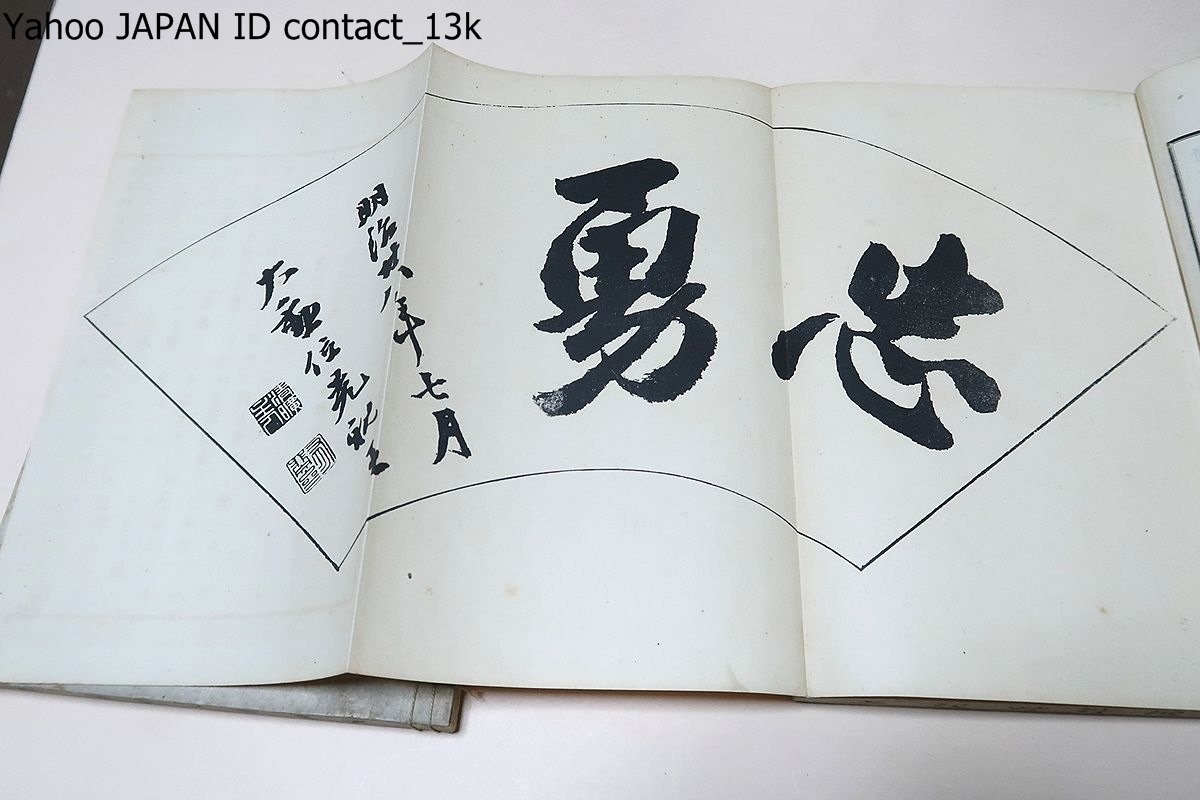 Yahoo JAPAN ID contact_13k
忠勇
明治廿八年七月
大勲位晃親王